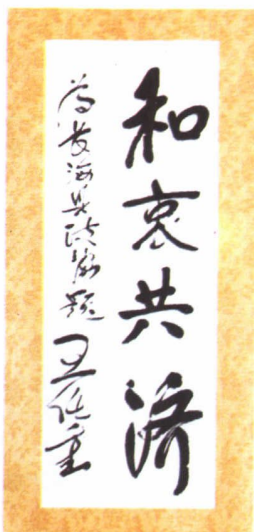 和衷共济
为海县政协题 王任重